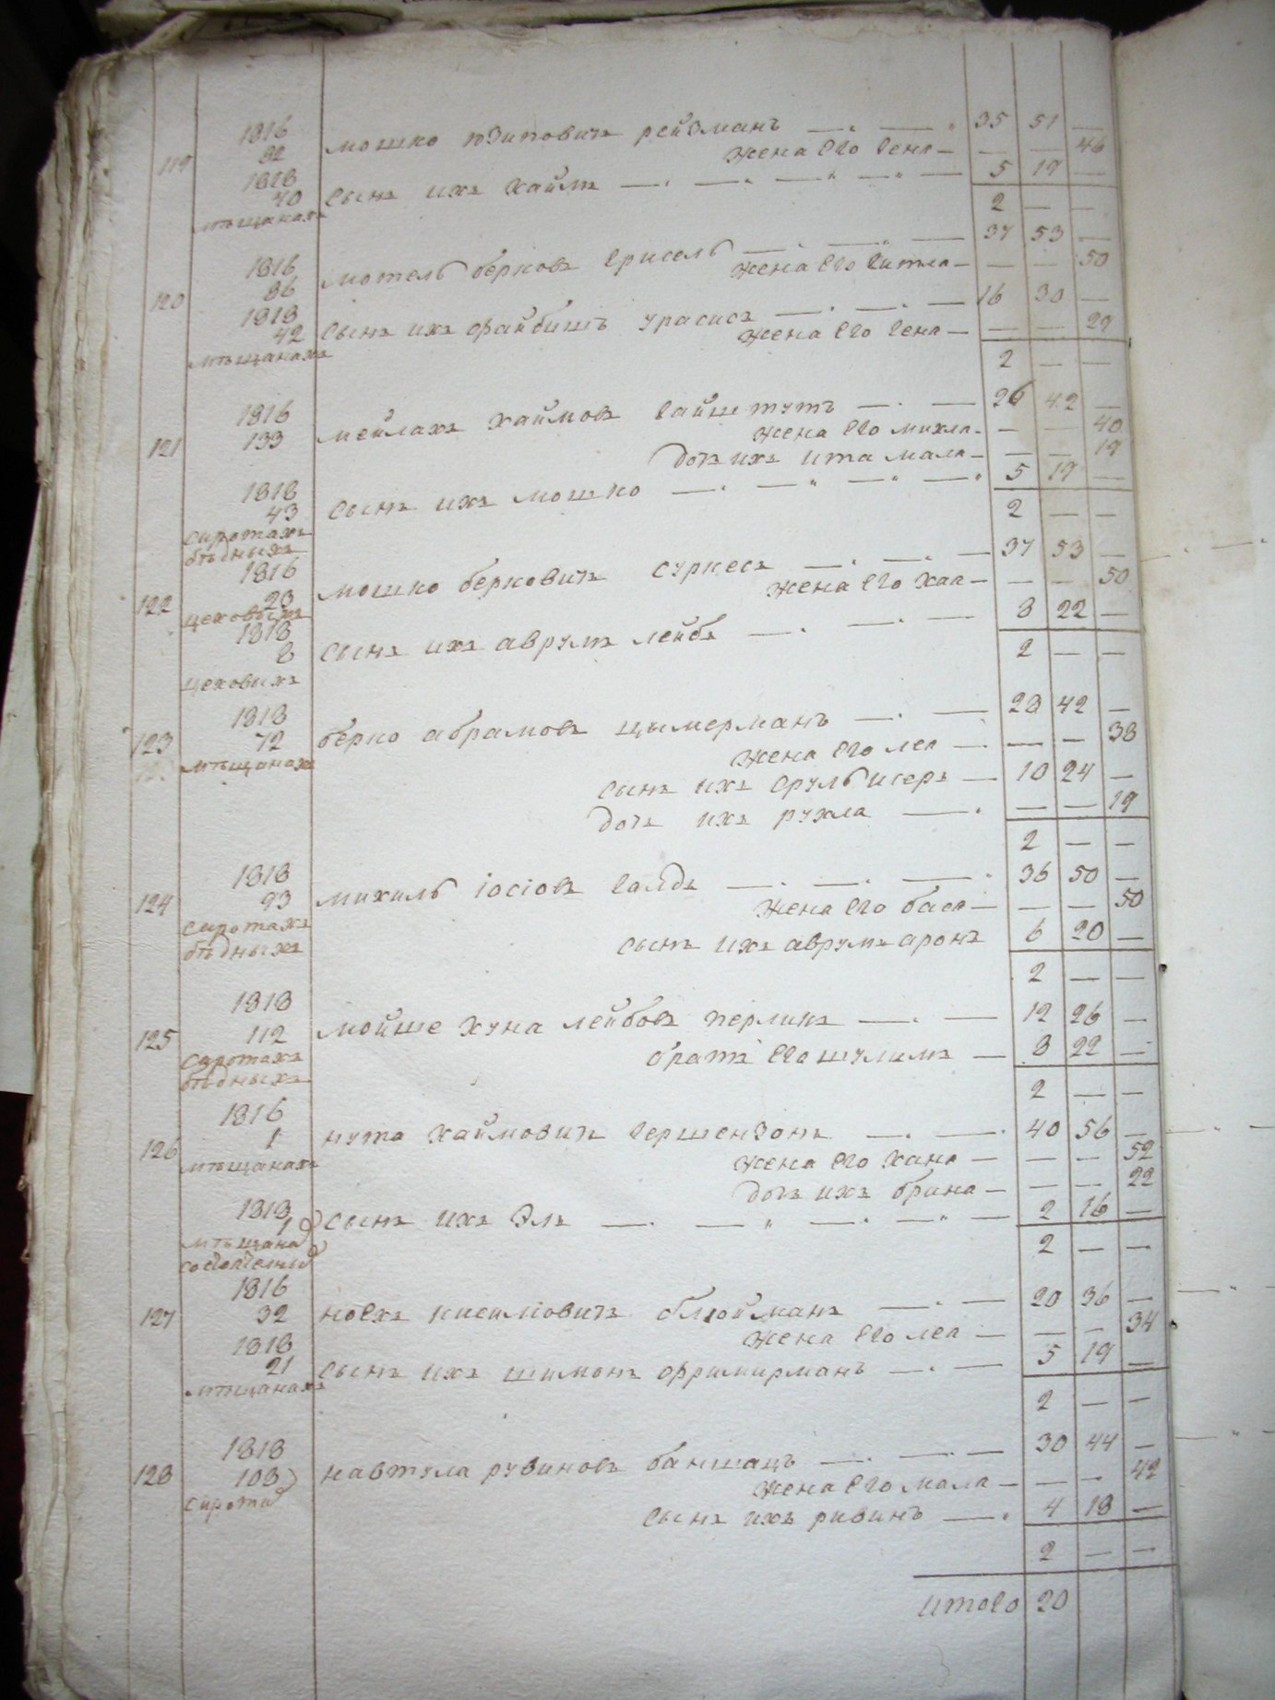 1816
мошко юзиповичъ рейзманъ 35 51 —
119 32 жена его геня — — 46
1818
40 сынъ ихъ хаимъ 5 19 —
мѣщанахъ
2 — —
1816
мотель берковъ грисель 37 53 —
120 86 жена его гитля — — 50
1818
42 сынъ ихъ файбишъ 16 30 —
мѣщанахъ жена его геня — — 29
2 — —
1816
мейлахъ хаймовъ 26 42 —
121 133 жена его михля — — 40
дочь ихъ ита маля — — 19
1818
43 сынъ ихъ мошко 5 19 —
сиротахъ
бѣдныхъ
2 — —
1816
мошко берковичъ суркесъ 37 53 —
122 23 жена его хая — — 50
цеховыхъ
1818
8 сынъ ихъ аврумъ лейбъ 8 22 —
цеховыхъ
2 — —
1818
123 72 берко абрамовъ цымерманъ 28 42 —
мѣщанахъ жена его лея — — 38
сынъ ихъ срульисеръ 10 24 —
дочь ихъ рухля — — 19
2 — —
1818
124 93 михиль іосіовъ голдъ 36 50 —
сиротахъ жена его бася — — 50
бѣдныхъ сынъ ихъ аврумъ аронъ 6 20 —
2 — —
1818
125 112 мойше хуна лейбовъ перлинъ 12 26 —
сиротахъ братъ его шулимъ 8 22 —
бѣдныхъ
2 — —
1816
126 1 нута хаймовичъ гершензонъ 40 56 —
мѣщанахъ жена его хана — — 52
дочь ихъ брина — — 22
1818
1 сынъ ихъ эль 2 16 —
мѣщана
2 — —
1816
127 32 ноехъ кисилiовичъ 20 36 —
1818 жена его лея — — 34
21 сынъ ихъ шимонъ 5 19 —
мѣщанахъ
2 — —
1818
128 108 навтула рувиновъ баншацъ 30 44 —
сирота жена его маля — — 42
сынъ ихъ ривинъ 4 18 —
2 — —
итого 20